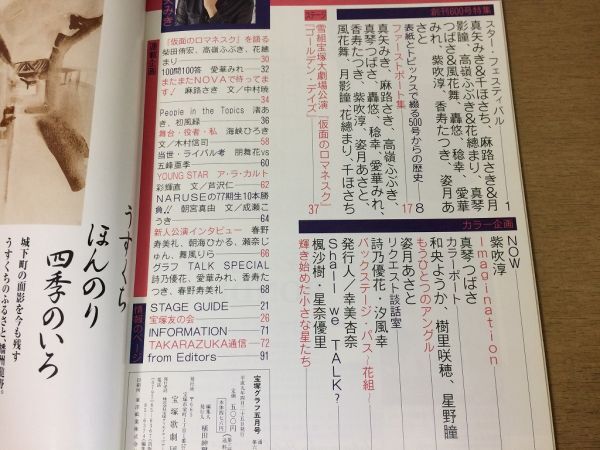 創刊600号特集
スター・フェスティバル
真矢みき&千ほさち、麻路さき&月
影瞳、高嶺ふぶき&花總まり、真琴
つばさ&風花舞、轟悠、稔幸、愛華
みれ、紫吹淳、香寿たつき、姿月あ
さと 1
表紙とトピックスで綴る500号からの歴史 8
ファーストポート集 17
真矢みき、麻路さき、高嶺ふぶき、
真琴つばさ、轟悠、稔幸、愛華みれ、
香寿たつき、紫吹淳、姿月あさと、
風花舞、月影瞳、花總まり、千ほさち
ステージ
雪組宝塚大劇場公演『仮面のロマネスク』
『ゴールデン・デイズ』 37
カラー企画
NOW
紫吹淳
Imagination
真琴つばさ
カラーポート
和央ようか、樹里咲穂、星野瞳
もうひとつのアングル
姿月あさと
リクエスト談話室
詩乃優花・汐風幸
バックステージ・パス〜花組〜
発行人／幸美杏奈
Shall we TALK?
楓沙樹・星奈優里
輝き始めた小さな星たち
『仮面のロマネスク』を語る
柴田侑宏、高嶺ふぶき、花總
まり 30
100問100答 愛華みれ 32
またまたNOVAで待ってま
す! 麻路さき 文/中村暁
34
People in the Topics 渚あ
き、初風緑 36
舞台・役者・私 海峡ひろき
文/木村信司 58
当世・ライバル考 朋舞花vs
五峰亜季 60
YOUNG STAR ア・ラ・カルト
彩輝直 文/芦沢仁 62
NARUSEの77期生10本勝
負!! 朝宮真由 文/成瀬こ
うき 64
新人公演インタビュー 春野
寿美礼、朝海ひかる、瀬奈じ
ゅん、舞風りら 66
グラフ TALK SPECIAL
詩乃優花、愛華みれ、香寿た
つき、春野寿美礼 68
情報のページ
STAGE GUIDE 21
宝塚友の会 26
INFORMATION 71
TAKARAZUKA通信 72
from Editors 91
宝塚グラフ五月号
定価 五〇〇円
宝塚歌劇団
うすくち
ほんのり
四季のいろ
城下町の面影を今も残す
うすくちのふるさと、播州龍野。